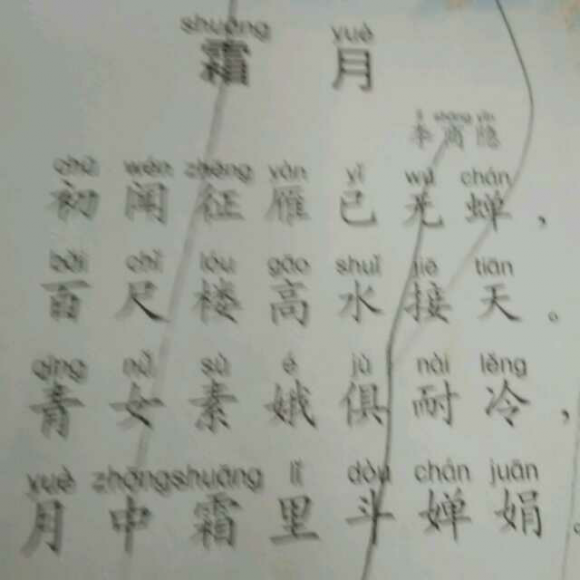 shuāng yuè
霜 月
lǐ shāng yǐn
李商隐
chū wén zhēng yàn yǐ wú chán
初闻征雁已无蝉，
bǎi chǐ lóu gāo shuǐ jiē tiān
百尺楼高水接天。
qīng nǚ sù é jù nài lěng
青女素娥俱耐冷，
yuè zhōng shuāng lǐ dòu chán juān
月中霜里斗婵娟。